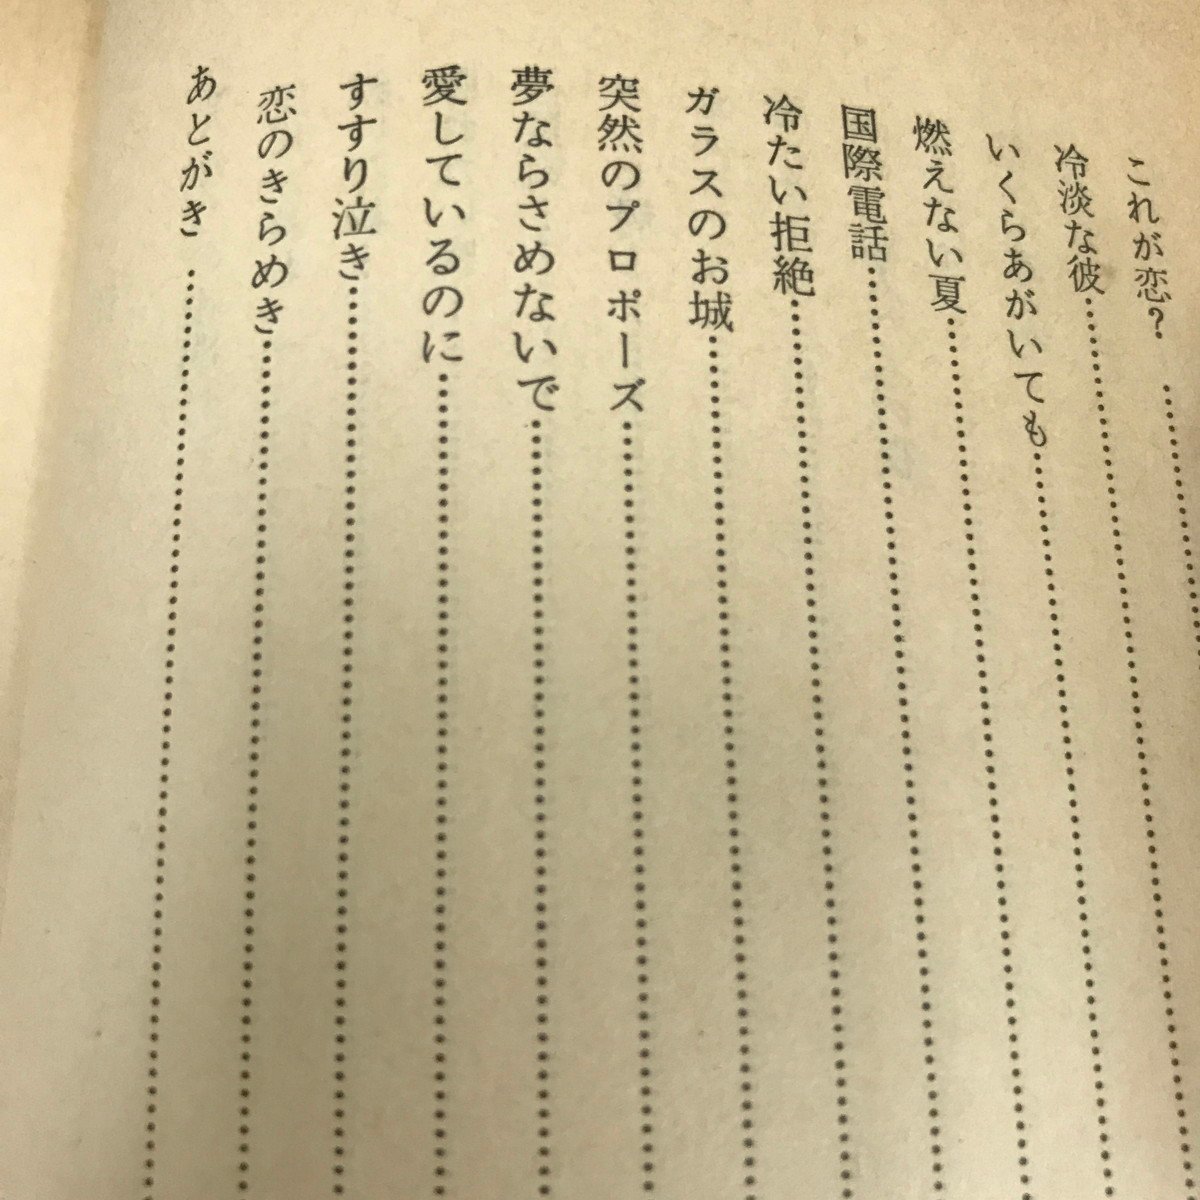 これが恋?
冷淡な彼
いくらあがいても
燃えない夏
国際電話
冷たい拒絶
ガラスのお城
突然のプロポーズ
夢ならさめないで
愛しているのに
すすり泣き
恋のきらめき
あとがき